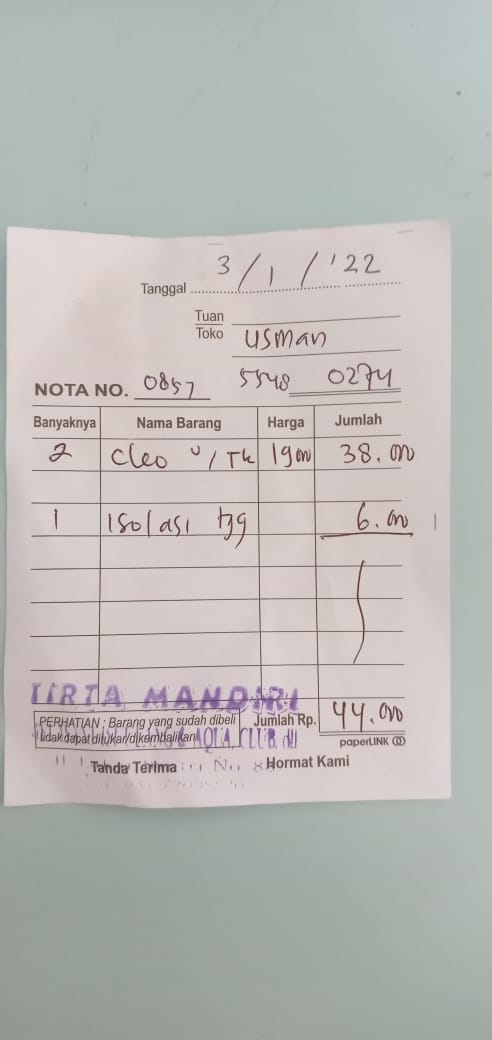 Tanggal 3/1/'22
Tuan
Toko usman
NOTA NO. 0857 5548 0274
Banyaknya Nama Barang Harga Jumlah
2 Cleo 19000 38.000
1 Isolasi 6.000
TIRTA MANDIRI
PERHATIAN : Barang yang sudah dibeli Jumlah Rp. 44.000
tidak dapat ditukar/dikembalikan
AQUA, CLUB, dll
paperLINK
Tanda Terima Hormat Kami